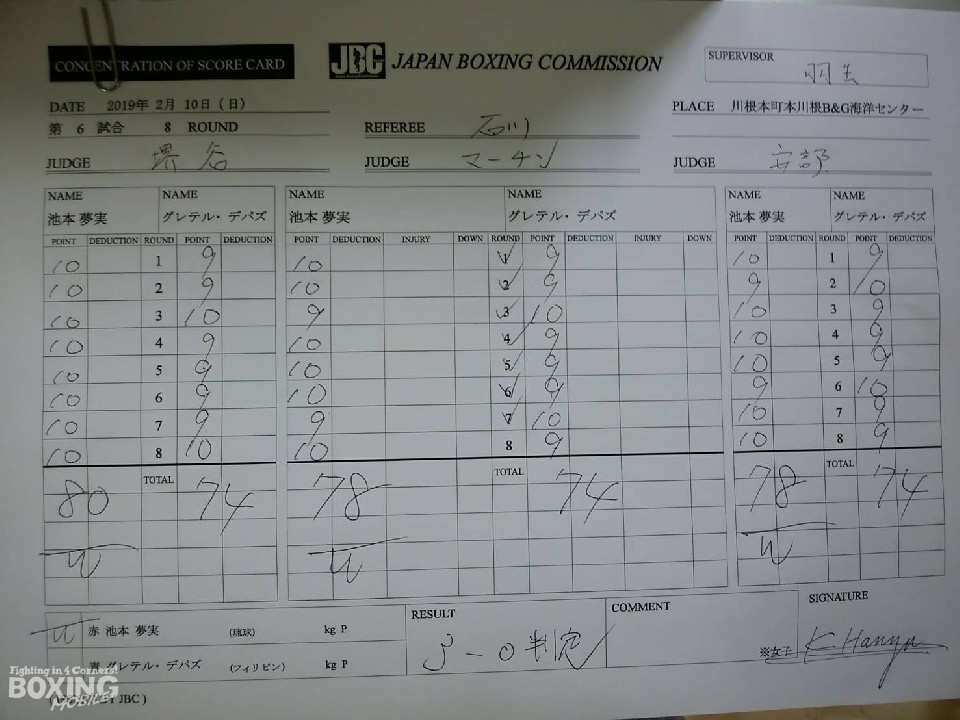 CONCENTRATION OF SCORE CARD
JBC JAPAN BOXING COMMISSION
SUPERVISOR 羽生
DATE 2019年 2月 10日(日)
PLACE 川根本町本川根B&G海洋センター
第 6 試合 8 ROUND
REFEREE 石川
JUDGE 堺谷 JUDGE マーチン JUDGE 安部
NAME NAME NAME NAME NAME NAME
池本 夢実 グレテル・デパズ 池本 夢実 グレテル・デパズ 池本 夢実 グレテル・デパズ
POINT DEDUCTION ROUND POINT DEDUCTION POINT DEDUCTION INJURY DOWN ROUND POINT DEDUCTION INJURY DOWN POINT DEDUCTION ROUND POINT DEDUCTION
10 1 9 10 1 9 10 1 9
10 2 9 10 2 9 9 2 10
10 3 10 9 3 10 10 3 9
10 4 9 10 4 9 10 4 9
10 5 9 10 5 9 10 5 9
10 6 9 10 6 9 9 6 10
10 7 9 9 7 10 10 7 9
10 8 10 10 8 9 10 8 9
80 TOTAL 74 78 TOTAL 74 78 TOTAL 74
W W W
W 赤 池本 夢実 (琉球) kg P
青 グレテル・デパズ (フィリピン) kg P
RESULT
3-0 判定
COMMENT
※女子
SIGNATURE
K Hanyu
Fighting in 4 Corners!
BOXING
MOBILE
JBC)